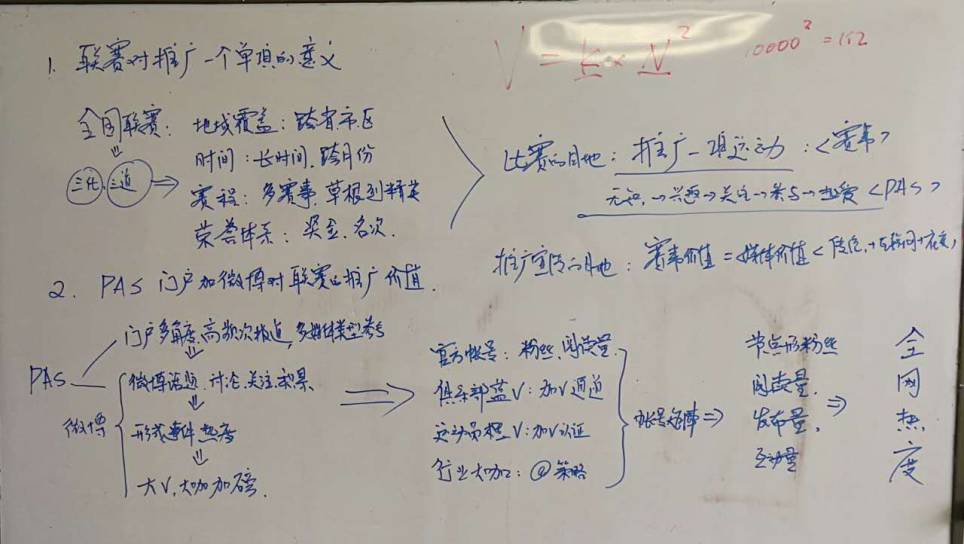 1. 联赛对推广一个单项的意义
V = K × N²
10000² = 1亿
全国联赛: 地域覆盖: 跨省市区
时间: 长时间, 跨月份
三化 三道 ⇒ 赛程: 多赛事, 草根到精英
荣誉体系: 奖金、名次.
比赛的目的: 推广一项运动: <赛事>
无知→兴趣→关注→参与→热爱 <PAS>
推广宣传的目的: 赛事价值 = 媒体价值
2. PAS 门户加微博对联赛的推广价值.
PAS
门户多角度, 高频次报道, 多媒体类型参与
微博
微博话题、讨论、关注
形成事件热度
大V, 大咖加磅.
官方帐号: 粉丝, 阅读量.
俱乐部蓝V: 加V通道
运动员橙V: 加V认证
行业大咖: @策略
帐号矩阵 ⇒
节点形粉丝
阅读量,
发布量,
互动量
⇒
全网热度